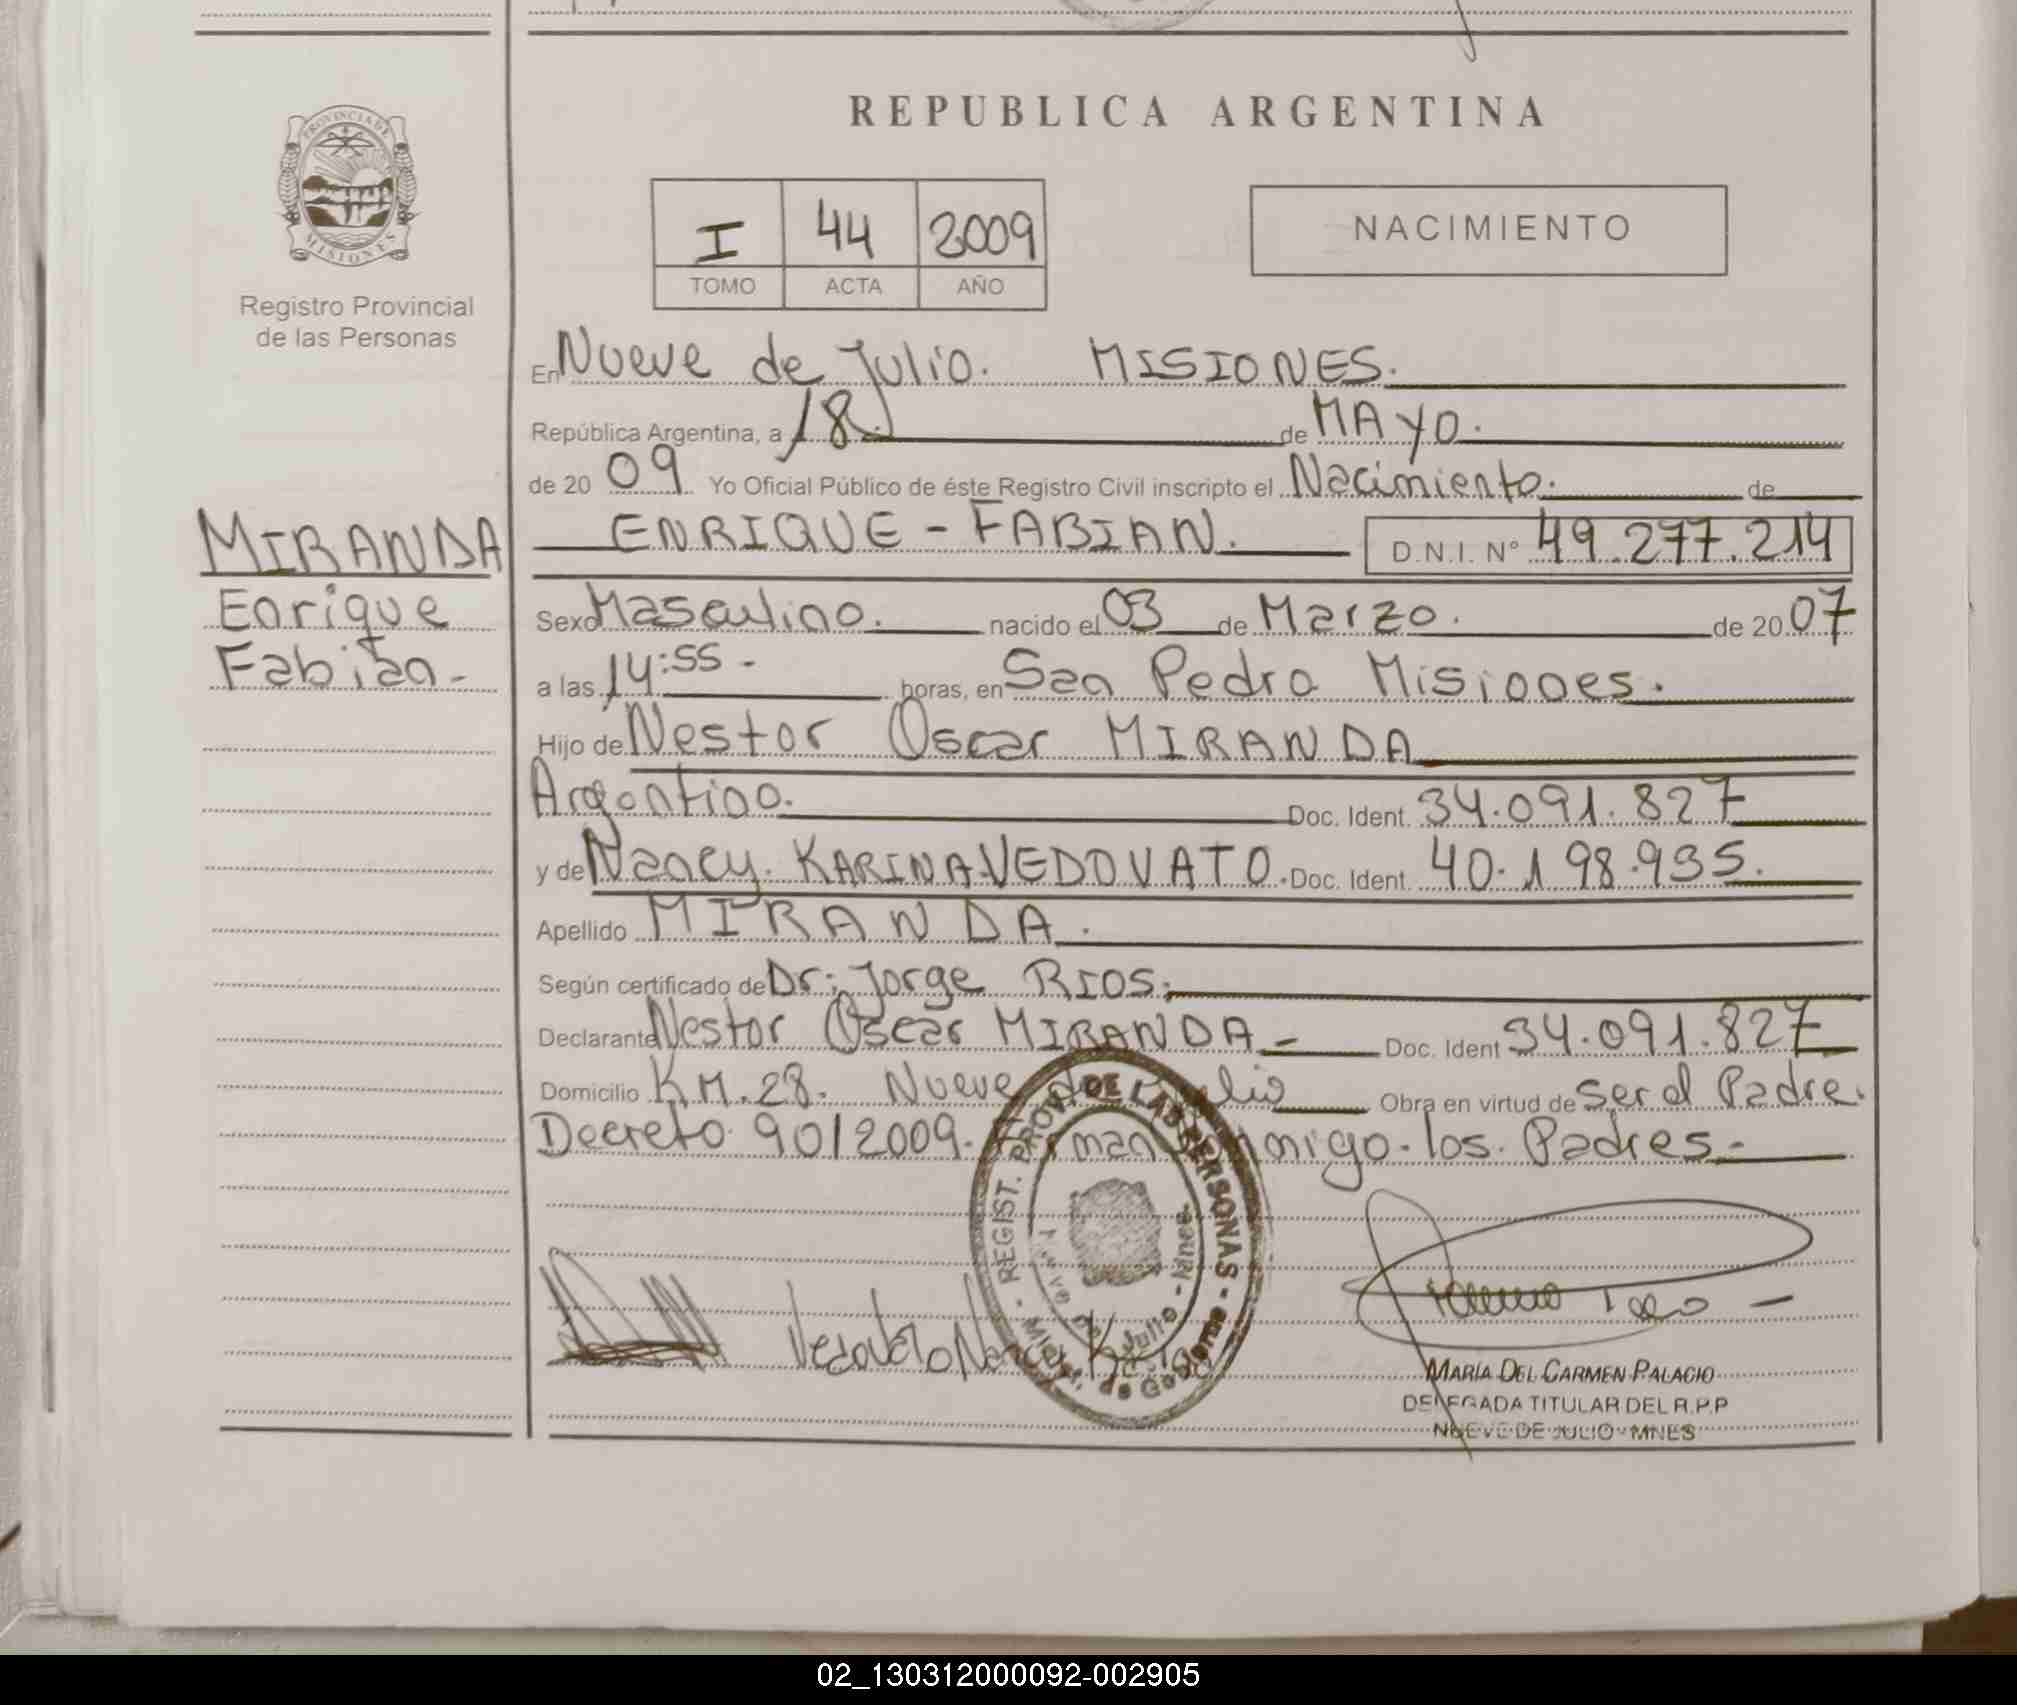 PROVINCIA DE
MISIONES
Registro Provincial
de las Personas
REPUBLICA ARGENTINA
I 44 2009
TOMO ACTA AÑO
NACIMIENTO
En Nueve de Julio. MISIONES.
República Argentina, a 18. de MAYO.
de 20 09 Yo Oficial Público de éste Registro Civil inscripto el Nacimiento. de
MIRANDA
Enrique
Fabian-
ENRIQUE - FABIAN. D.N.I. N° 49.277.214
Sexo Masculino. nacido el 03 de Marzo. de 20 07
a las 14:55 - horas, en San Pedro Misiones.
Hijo de Nestor Oscar MIRANDA
Argentino. Doc. Ident. 34.091.827
y de Nancy. KARINA.VEDOVATO. Doc. Ident. 40.198.935.
Apellido MIRANDA.
Según certificado de Dr: Jorge RIOS.
Declarante Nestor Oscar MIRANDA - Doc. Ident 34.091.827
Domicilio KM.28. Nueve de Julio Obra en virtud de ser el Padre.
Decreto 90/2009. Firman conmigo los Padres.-
REGIST. PROV. DE LAS PERSONAS - Minist. de Gobierno
Nueve de Julio - Mnes
Vedovato Nancy
MARIA DEL CARMEN PALACIO
DELEGADA TITULAR DEL R.P.P
NUEVE DE JULIO - MNES
02_130312000092-002905